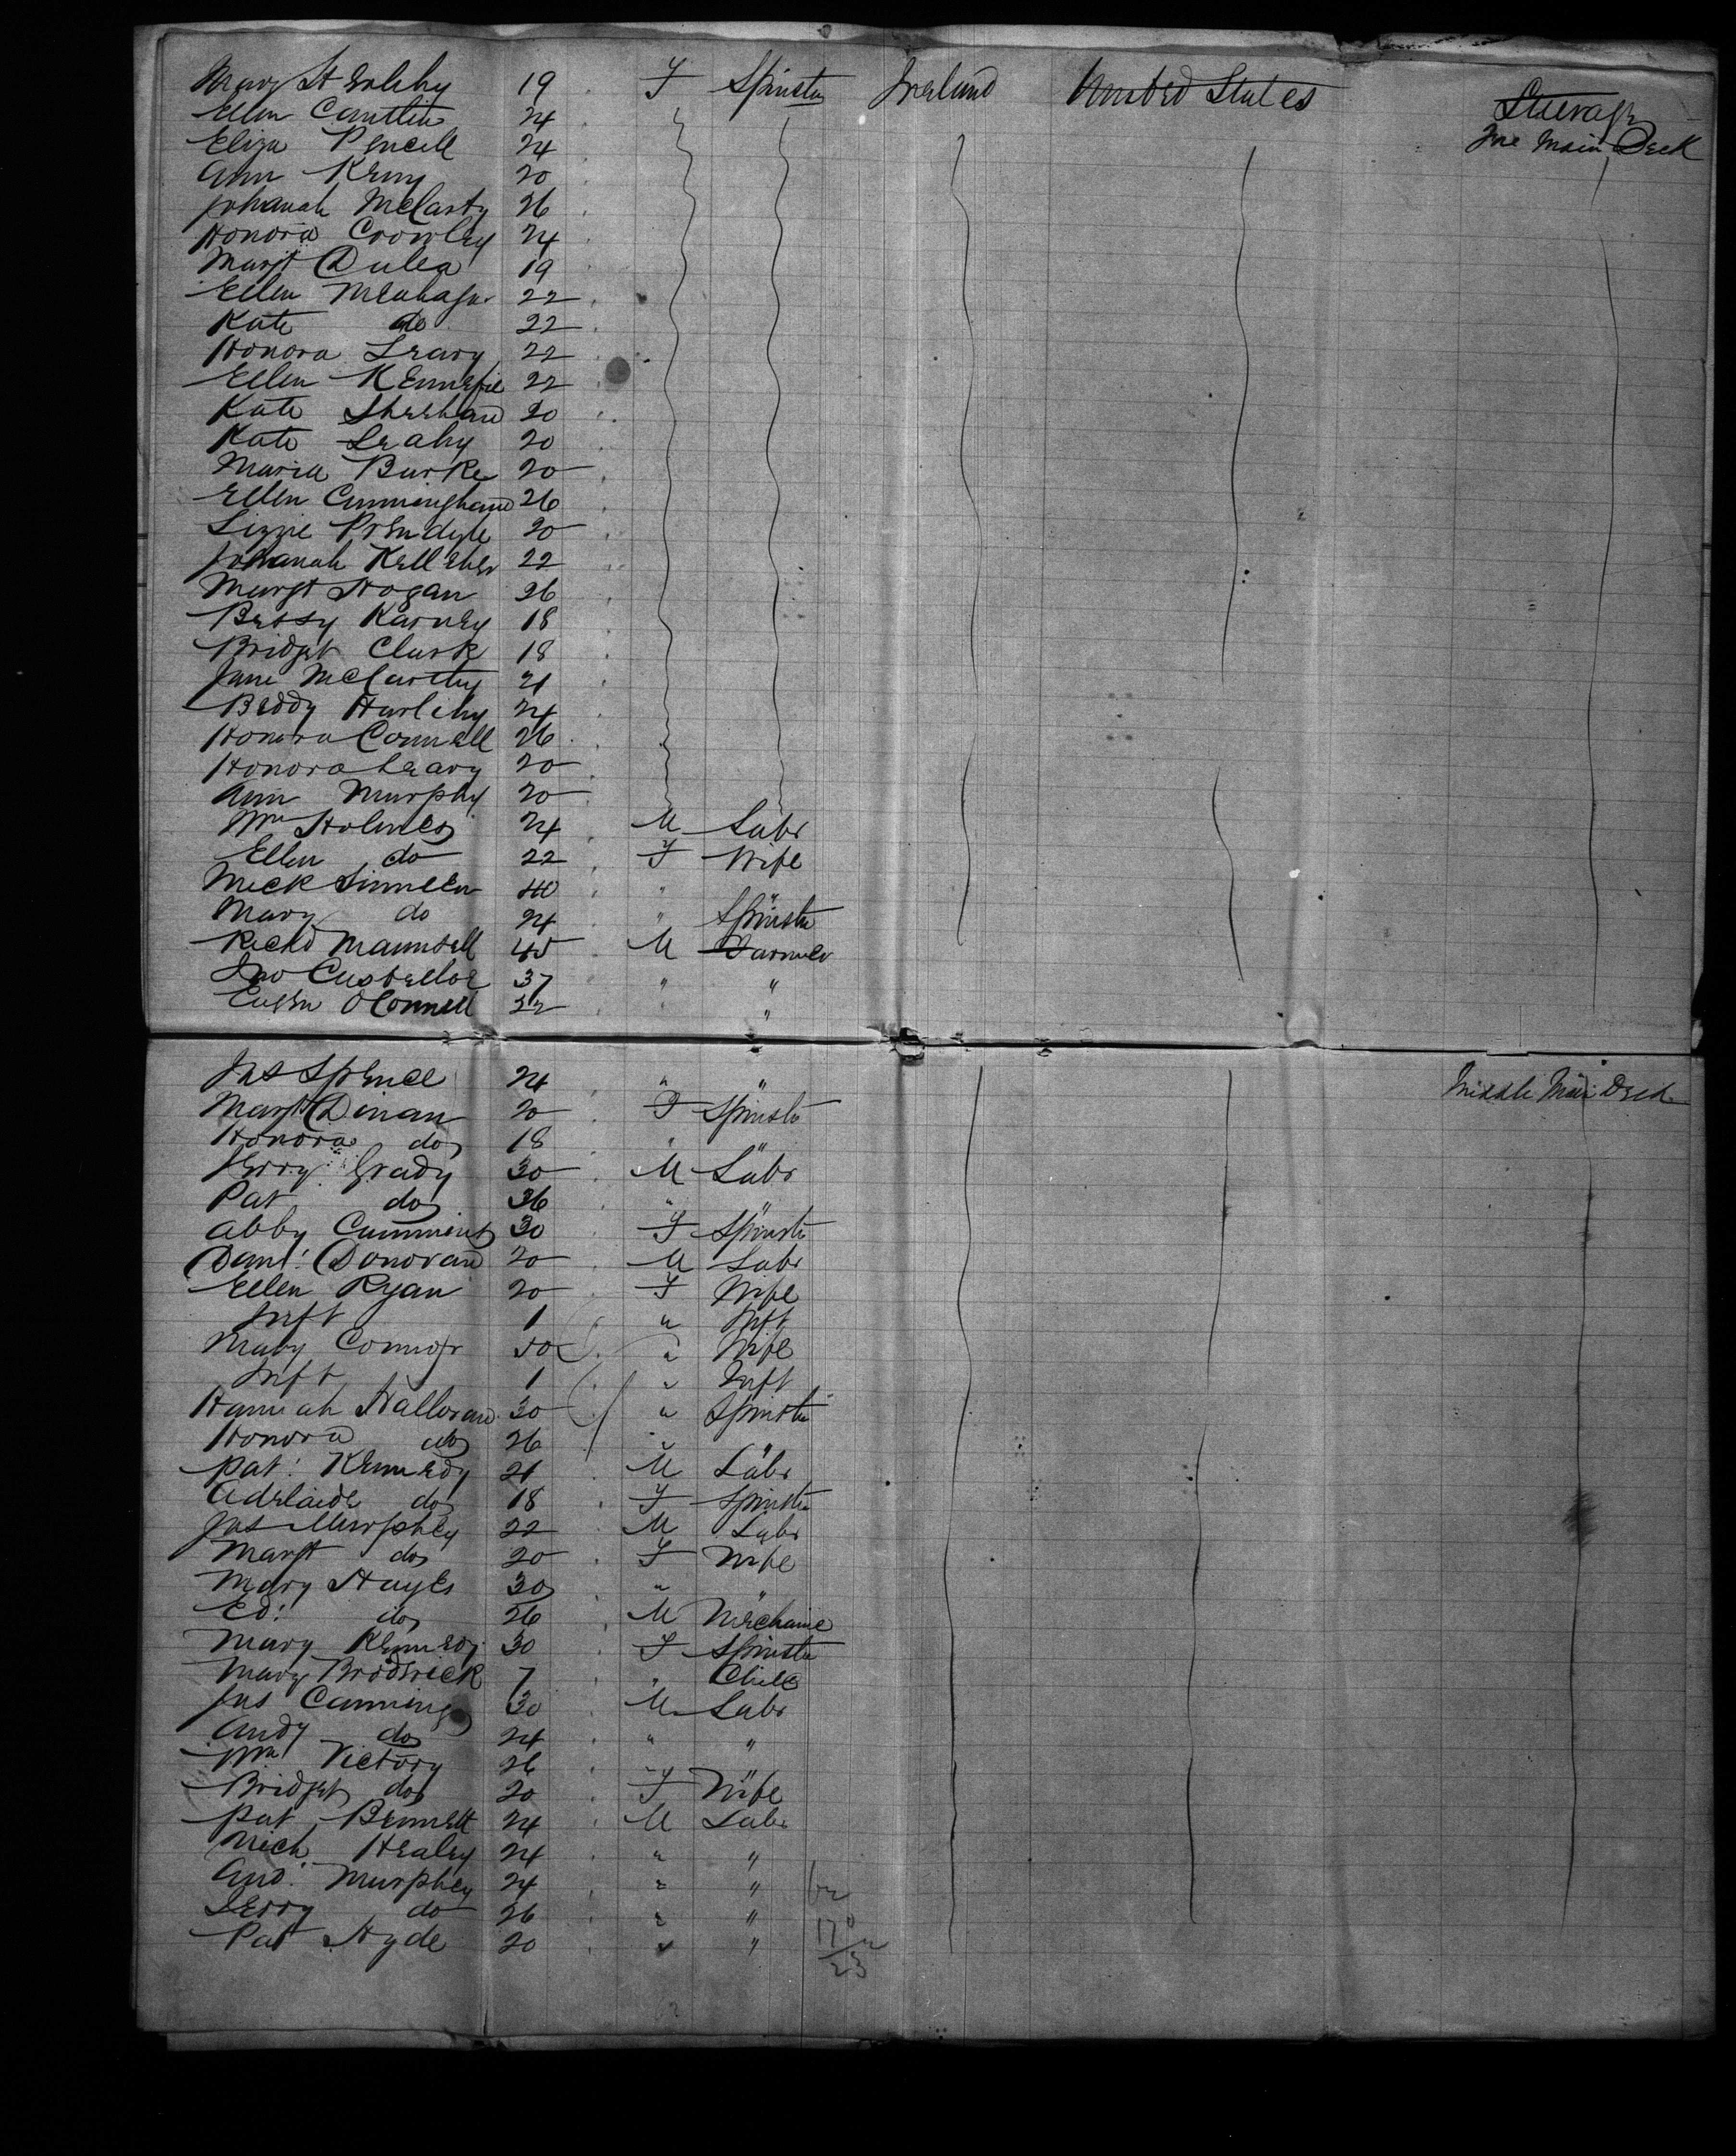 Mary 19 F Spinster Ireland United States Steerage
Ellen Cantlin 24 Fore Main Deck
Eliza 24
Ann Keny 20
Johanah McCarty 26
Honora Crowley 24
Margt Dulea 19
Ellen 22
Kate do 22
Honora Leary 22
Ellen Kennefie 22
Kate Sheehan 20
Kate Leahy 20
Maria Burke 20
Ellen Cunningham 26
Lizzie 20
Johanah Kelleher 22
Margt Hogan 26
Betsy Karney 18
Bridget Clark 18
Jane McCarthy 21
Beddy Hurlihy 24
Honora Connell 26
Honora Leary 20
Ann Murphy 20
Wm Holmes 24 M Labr
Ellen do 22 F Wife
Mick 40 " "
Mary do 24 " Spinster
Richd Maunsell 45 M Farmer
Jno Custelloe 37 " "
Eugen OConnell 22 "
Jas Spence 24 " " Middle Main Deck
Margt Dinan 20 F Spinster
Honora do 18 " "
Jerry Grady 30 M Labr
Pat do 36 " "
Abby Cummins 30 F Spinster
Danl: Donovan 20 M Labr
Ellen Ryan 20 F Wife
Inft 1 " Inft
Mary Connor " Wife
Inft 1 " Inft
Hannah Halloran 30 " Spinster
Honora do 26 " "
Pat: Kennedy 21 M Labr
Adelaide do 18 F Spinster
Jas Murphey 22 M Labr
Margt do 20 F Wife
Mary Hayes 30 " "
Ed: do 26 M Mechanic
Mary Kennedy 30 F Spinster
Mary Brodrick 7 " Child
Jas Canning 30 M Labr
Andy do 24 " "
Wm Victory 26 " "
Bridget do 20 F Wife
Pat Bennett 24 M Labr
Mich Healey 24 " "
And: Murphey 24 " "
Jerry do 26 " "
Pat Hyde 20 " "